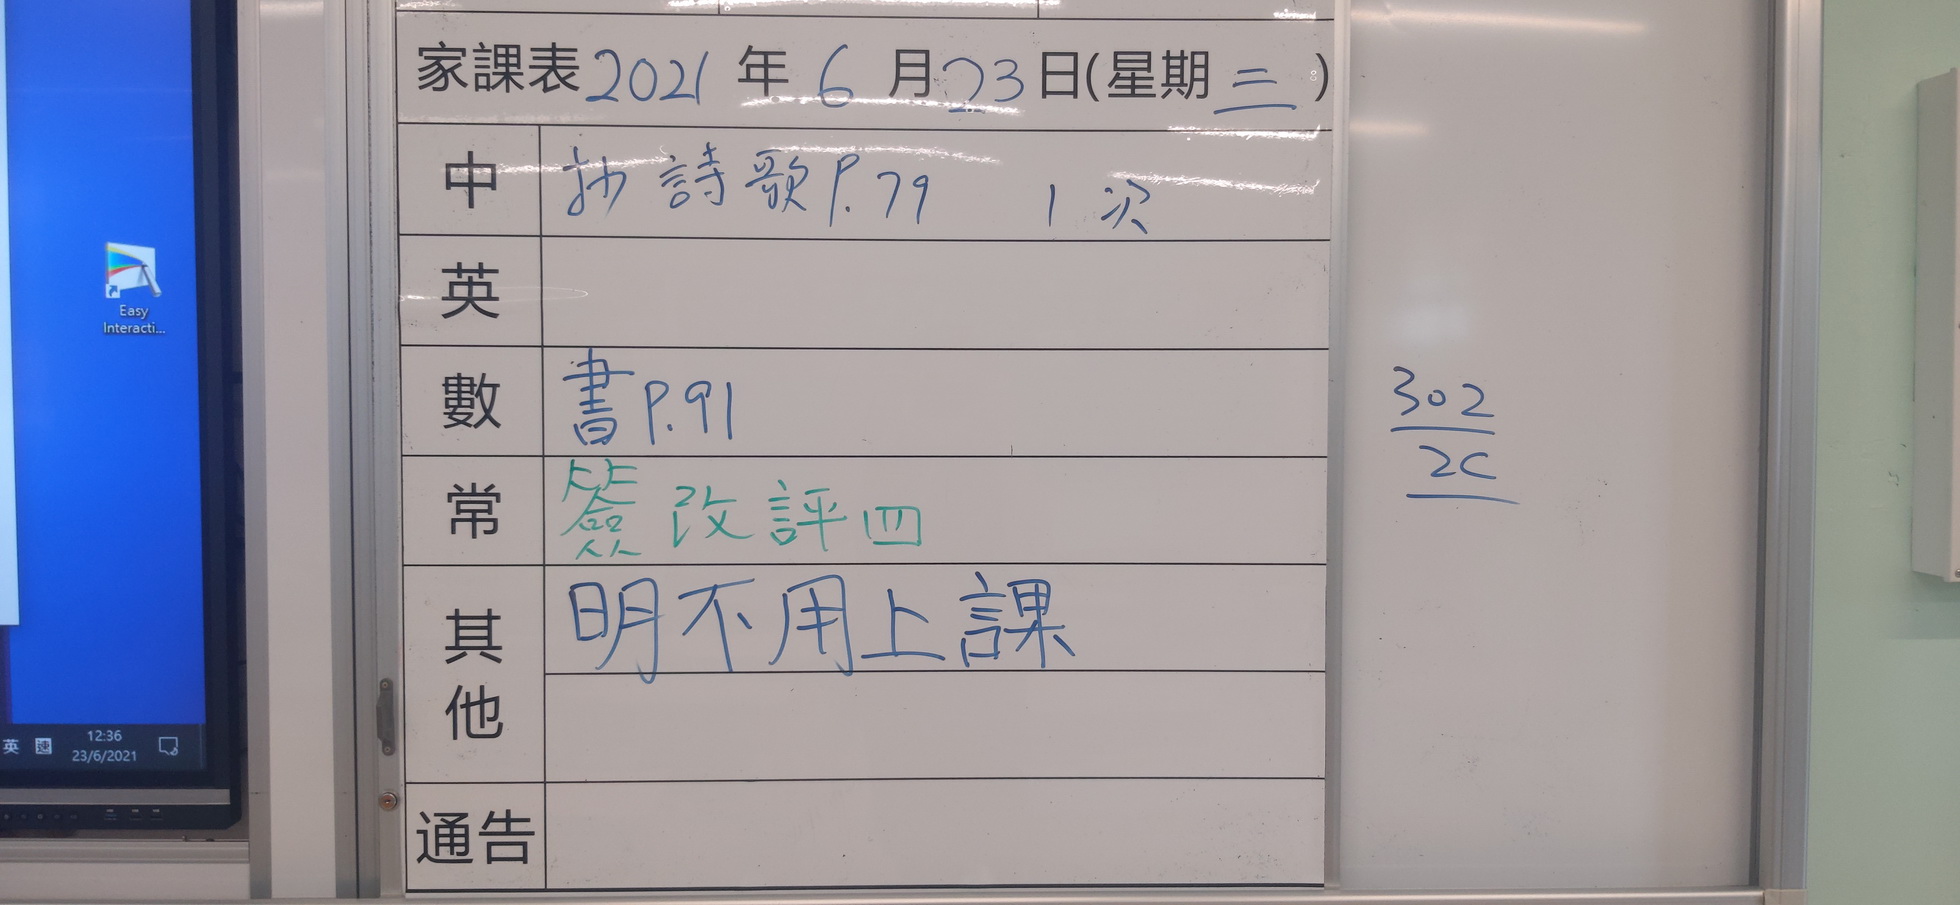 家課表 2021 年 6 月 23 日(星期 三 )
中 抄詩歌P.79 1次
英
數 書P.91
常 簽改評四
其他 明不用上課
通告
302
2C
Easy
Interacti...
英 速
12:36
23/6/2021